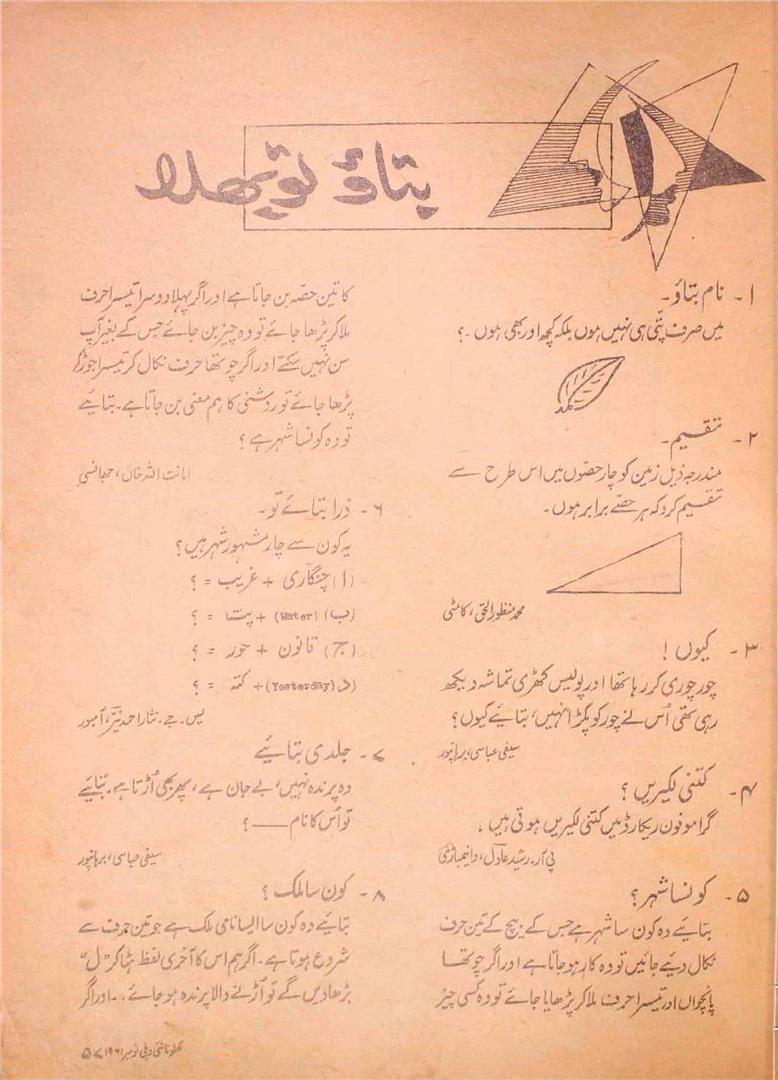 بتاؤ تو بھلا
۱- نام بتاؤ۔
میں صرف پتّی ہی نہیں ہوں بلکہ کچھ اور بھی ہوں۔؟
۲- تقسیم۔
مندرجہ ذیل زمین کو چار حصّوں میں اس طرح سے
تقسیم کرو کہ ہر حصّے برابر ہوں۔
محمد منظور الحق، کامٹی
۳- کیوں!
چور چوری کر رہا تھا اور پولیس کھڑی تماشہ دیکھ
رہی تھی اُس نے چور کو پکڑا نہیں، بتایئے کیوں؟
سیفی عباسی، برہانپور
۴- کتنی لکیریں؟
گراموفون ریکارڈ میں کتنی لکیریں ہوتی ہیں۔
پی آر۔ رشید عادل، وانیمباڑی
۵- کونسا شہر؟
بتایئے وہ کون سا شہر ہے جس کے بیچ کے تین حرف
نکال دیئے جائیں تو وہ کار ہو جاتا ہے اور اگر چوتھا
پانچواں اور تیسرا حرف ملا کر پڑھایا جائے تو وہ کسی چیز
کا تین حصّہ بن جاتا ہے اور اگر پہلا دوسرا تیسرا حرف
ملا کر پڑھا جائے تو وہ چیز بن جائے جس کے بغیر آپ
سن نہیں سکتے اور اگر چوتھا حرف نکال کر تیسرا جوڑ کر
پڑھا جائے تو روشنی کا ہم معنی بن جاتا ہے۔ بتایئے
تو وہ کونسا شہر ہے؟
امانت اللہ خاں، جھانسی
۶- ذرا بتائے تو۔
یہ کون سے چار مشہور شہر ہیں؟
(ا) چنگاری + غریب = ؟
(ب) (Water) + پتہ = ؟
(ج) قانون + حور = ؟
(د) (Yesterday) + کتہ = ؟
یس۔ جے۔ نثار احمد نیّر، آمبور
۷- جلدی بتایئے
وہ پرندہ نہیں، بے جان ہے، پھر بھی اُڑتا ہے۔ بتایئے
تو اُس کا نام —— ؟
سیفی عباسی، برہانپور
۸- کون سا ملک؟
بتایئے وہ کون سا ایسا نامی ملک ہے جو تین حرف سے
شروع ہوتا ہے۔ اگر ہم اس کا آخری لفظ ہٹا کر "ل"
بڑھا دیں گے تو اُڑنے والا پرندہ ہو جائے۔ اور اگر
کھلونا نئی دہلی نومبر ۱۹۶۱ ۵۷